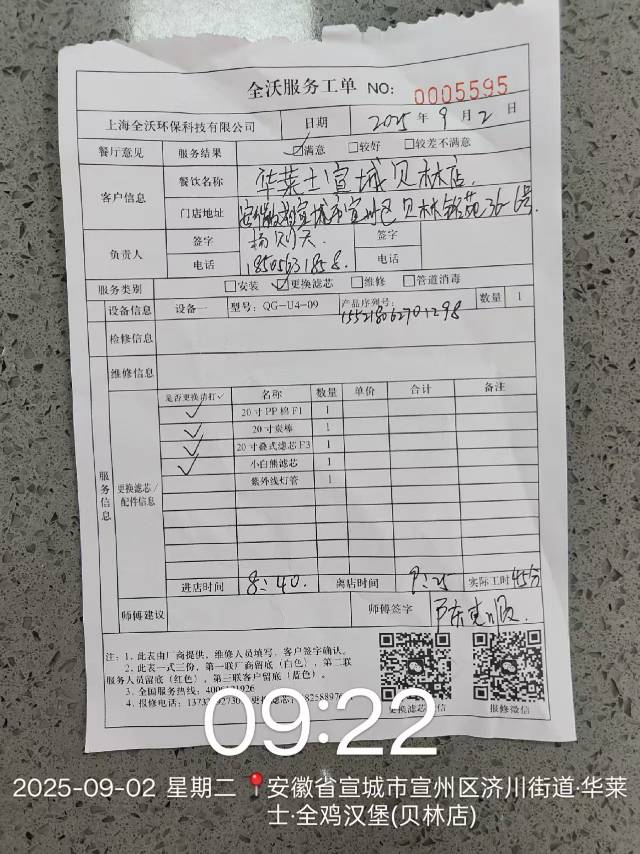 全沃服务工单 NO: 0005595
上海全沃环保科技有限公司 日期 2025年9月2日
餐厅意见 服务结果 ☑满意 □较好 □较差不满意
客户信息 餐饮名称 华莱士宣城贝林店
门店地址 安徽省宣城市宣州区贝林铭苑36-6号
负责人 签字 杨则天 签字
电话 18505631858 电话
服务类别 □安装 ☑更换滤芯 □维修 □管道消毒
设备信息 设备一 型号: QG-U4-09 产品序列号: 数量 1
检修信息
维修信息
服务信息 更换滤芯/配件信息
是否更换请打✓ 名称 数量 单价 合计 备注
✓ 20寸PP棉F1 1
✓ 20寸炭棒 1
✓ 20寸叠式滤芯F3 1
✓ 小白熊滤芯 1
紫外线灯管 1
进店时间 8:40. 离店时间 9:25 实际工时 45分
师傅建议 师傅签字
注: 1. 此表由厂商提供, 维修人员填写, 客户签字确认。
2. 此表一式三份, 第一联厂商留底 (白色), 第二联
服务人员留底 (红色), 第三联客户留底 (蓝色)。
3. 全国服务热线:
4. 报修电话:
报修微信
09:22
2025-09-02 星期二 安徽省宣城市宣州区济川街道·华莱
士·全鸡汉堡(贝林店)